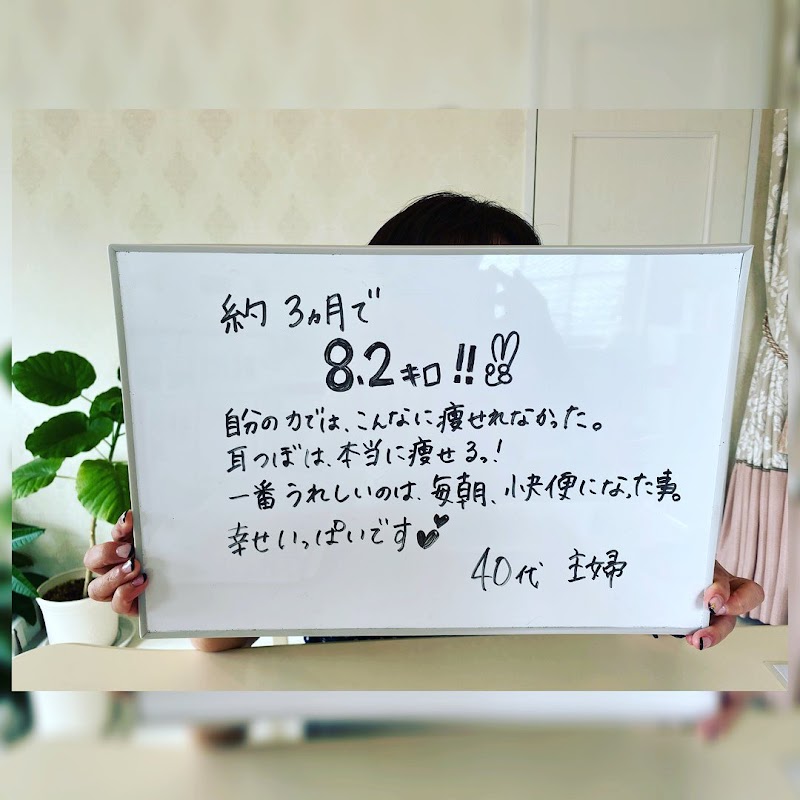 約3ヵ月で
8.2キロ!!
自分の力では、こんなに痩せれなかった。
耳つぼは、本当に痩せるっ!
一番うれしいのは、毎朝、小快便になった事。
幸せいっぱいです
40代 主婦